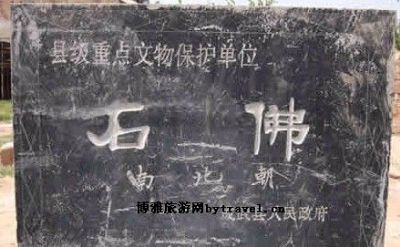 县级重点文物保护单位
石佛
南北朝
博雅旅游网bytravel.cn
成武县人民政府